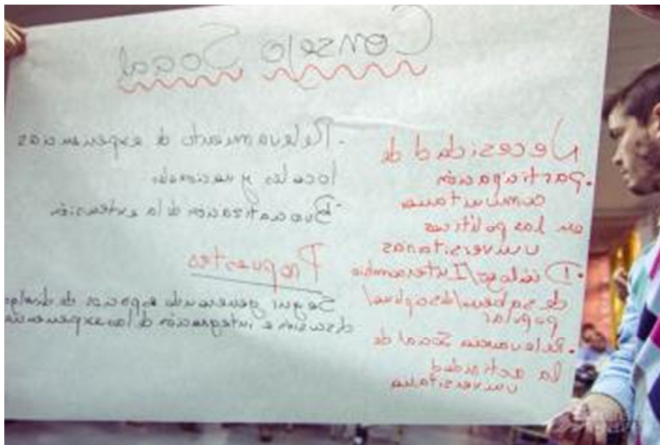 Consejo Social
Necesidad de
• participación
comunitaria
en las políticas
universitarias
• Diálogo/Intercambio
de
popular
• Relevancia Social de
la actividad
universitaria
- Relevamiento d experiencias
locales y nacionales
- Burocratización d la extensión
Propuestas
Seguir generando espacios de dialogo
discusión e integración d las experiencias